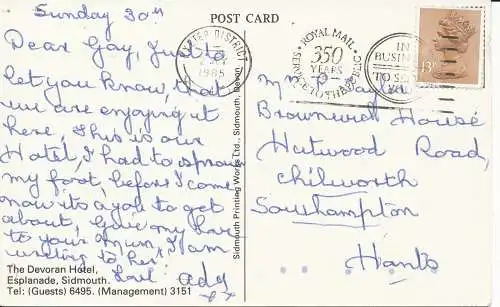 Sunday 30th
POST CARD
Dear Gay, Just to
let you know, that
we are enjoying it
here, This is our
Hotel, I had to sprain
my foot, before I come
now its a job to get
about, Give my love
to your Mum, I am
writing to her
Love Ada
xx
The Devoran Hotel,
Esplanade, Sidmouth.
Tel: (Guests) 6495. (Management) 3151
Sidmouth Printing Works Ltd., Sidmouth, Devon.
EXETER DISTRICT
1985
ROYAL MAIL
350
YEARS
SERVICE TO THE PUBLIC
IN
BUSINESS
TO SERVE
YOU
13P
Brownwich House
Hutwood Road,
Chilworth
Southampton
Hants